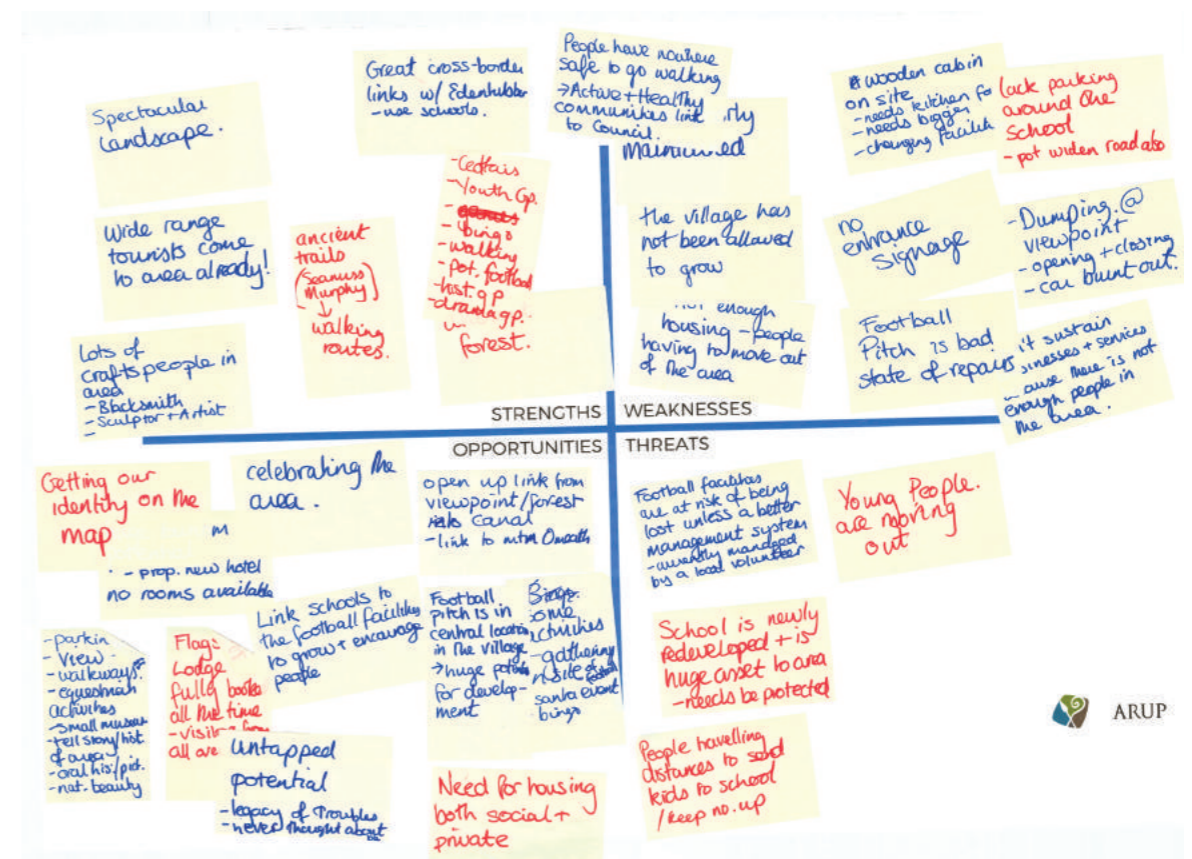 Spectacular
Landscape.
Great cross-border
links w/
- use schools.
People have nowhere
safe to go walking
→ Active + Healthy
communities link
to Council.
wooden cabin
on site
- needs kitchen
- needs bigger
- changing
lack parking
around the
School
- pot widen road also
Wide range
tourists come
to area already!
ancient
trails
(Seanuss
Murphy)
↓
walking
routes.
- Youth Gp.
- bingo
- walking
- pot. football
- hist. gp
- drama gp.
forest.
the village has
not been allowed
to grow
no
entrance
Signage
- Dumping @
viewpoint
- opening + closing
- car burnt out.
Lots of
Crafts people in
area
- Blacksmith
- Sculptor + Artist
-
enough
housing - people
having to move out
of the area
Football
Pitch is bad
state of repairs
sustain
+ services
there is not
enough people in
the area.
STRENGTHS
WEAKNESSES
OPPORTUNITIES
THREATS
Getting our
identity on the
map
celebrating the
area.
- prop. new hotel
no rooms available
open up link from
viewpoint/forest
Canal
- link to mtn Omeath
Football facilities
are at risk of being
lost unless a better
management system
- currently managed
by a local volunteer
Young People.
are moving
out
Link schools to
the football facilities
to grow + encourage
people
Football
pitch is in
central location
in the village
→ huge
for develop-
ment
Bingo.
- gathering
santa event
bingo
School is newly
redeveloped + is
huge asset to area
- needs be protected
- View
- walkways
- equestrian
activities
- small
- tell story/hist
of area
- oral his/pict.
- nat. beauty
Lodge
fully
all the time
all
Untapped
potential
- legacy of Troubles
- never thought about
Need for housing
both social +
private
People travelling
distances to send
kids to school
/ keep no. up
ARUP